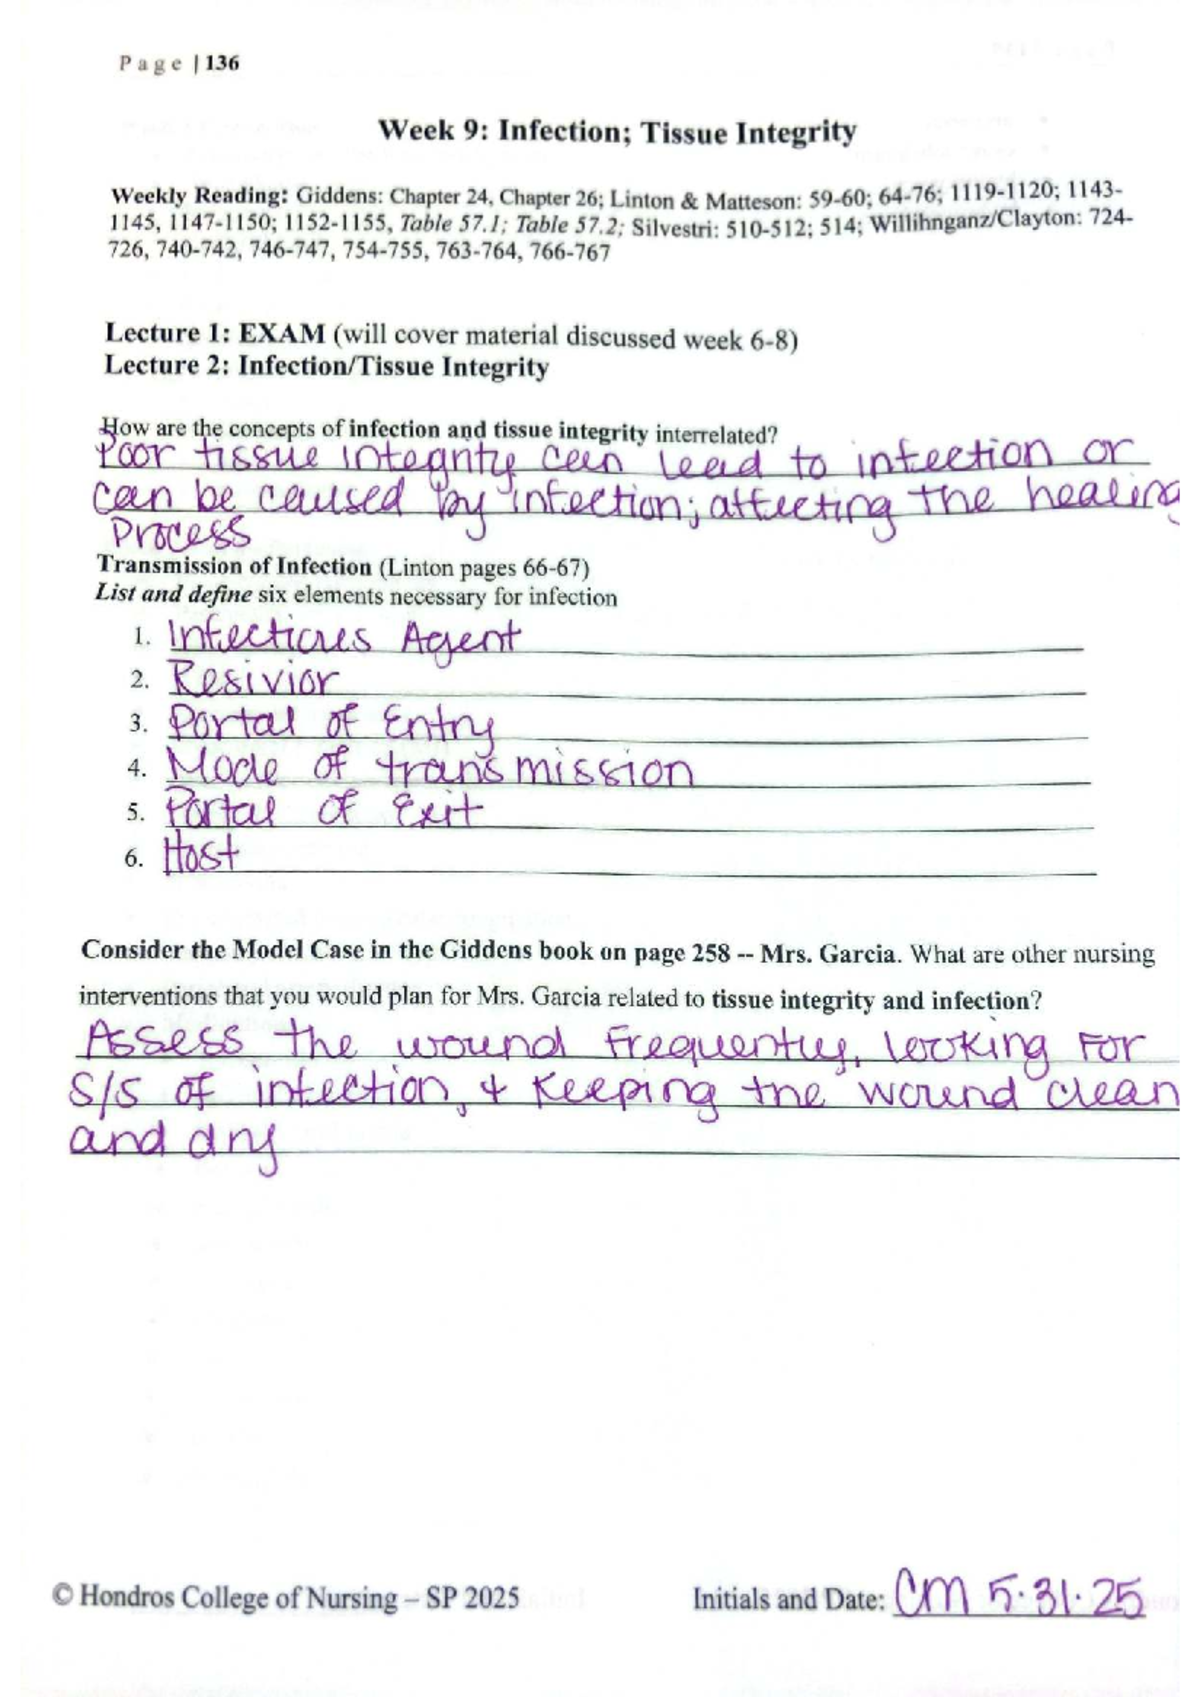 Page | 136
Week 9: Infection; Tissue Integrity
Weekly Reading: Giddens: Chapter 24, Chapter 26; Linton & Matteson: 59-60; 64-76; 1119-1120; 1143-
1145, 1147-1150; 1152-1155, Table 57.1; Table 57.2; Silvestri: 510-512; 514; Willihnganz/Clayton: 724-
726, 740-742, 746-747, 754-755, 763-764, 766-767
Lecture 1: EXAM (will cover material discussed week 6-8)
Lecture 2: Infection/Tissue Integrity
How are the concepts of infection and tissue integrity interrelated?
Poor tissue integrity can lead to infection or
can be caused by infection; affecting the healing
Process
Transmission of Infection (Linton pages 66-67)
List and define six elements necessary for infection
1. Infectious Agent
2. Resivior
3. Portal of Entry
4. Mode of transmission
5. Portal of Exit
6. Host
Consider the Model Case in the Giddens book on page 258 -- Mrs. Garcia. What are other nursing
interventions that you would plan for Mrs. Garcia related to tissue integrity and infection?
Assess the wound frequently, looking for
S/S of infection, & Keeping the wound clean
and dry
© Hondros College of Nursing – SP 2025
Initials and Date: CM 5.31.25